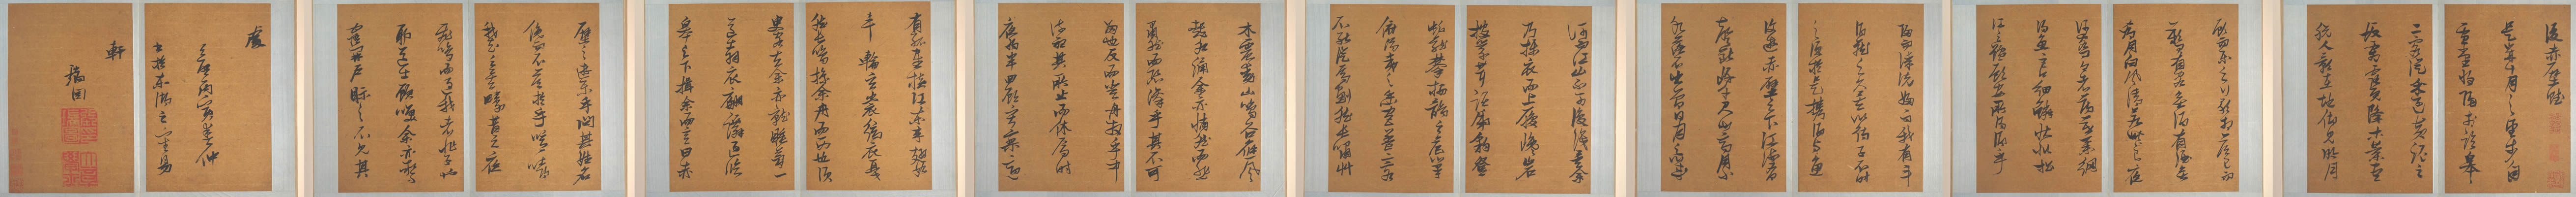 後赤壁賦
是歲十月之望步自
雪堂將歸於臨皋
二客從予過黃泥之
坂霜露既降木葉盡
脫人影在地仰見明月
顧而樂之行歌相答已而
歎曰有客無酒有酒無
肴月白風清如此良夜
何客曰今者薄暮舉網
得魚巨口細鱗狀如松
江之鱸顧安所得酒乎
歸而謀諸婦婦曰我有斗
酒藏之久矣以待子不時
之須於是攜酒與魚
復遊赤壁之下江流有
聲斷岸千尺山高月小
水落石出曾日月之幾
何而江山不可復識矣余
乃攝衣而上履巉岩
披蒙茸踞虎豹登
虬龍攀栖鶻之危巢
俯馮夷之幽宮蓋二客
不能從焉劃然長嘯草
木震動山鳴谷應風
起水涌余亦悄然而悲
肅然而恐凜乎其不可
留也反而登舟放乎中
流聽其所止而休焉時
夜將半四顧寂寥適
有孤鶴橫江東來翅如
車輪玄裳縞衣戛
然長鳴掠余舟而西也須
臾客去余亦就睡夢一
道士羽衣翩躚過臨
皋之下揖余而言曰赤
壁之遊樂乎問其姓名
俛而不答嗚呼噫嘻
我知之矣疇昔之夜
飛鳴而過我者非子也
耶道士顧笑余亦驚
寤開戶視之不見其
處
丙寅仲
書於東湖之
軒
瑞圖